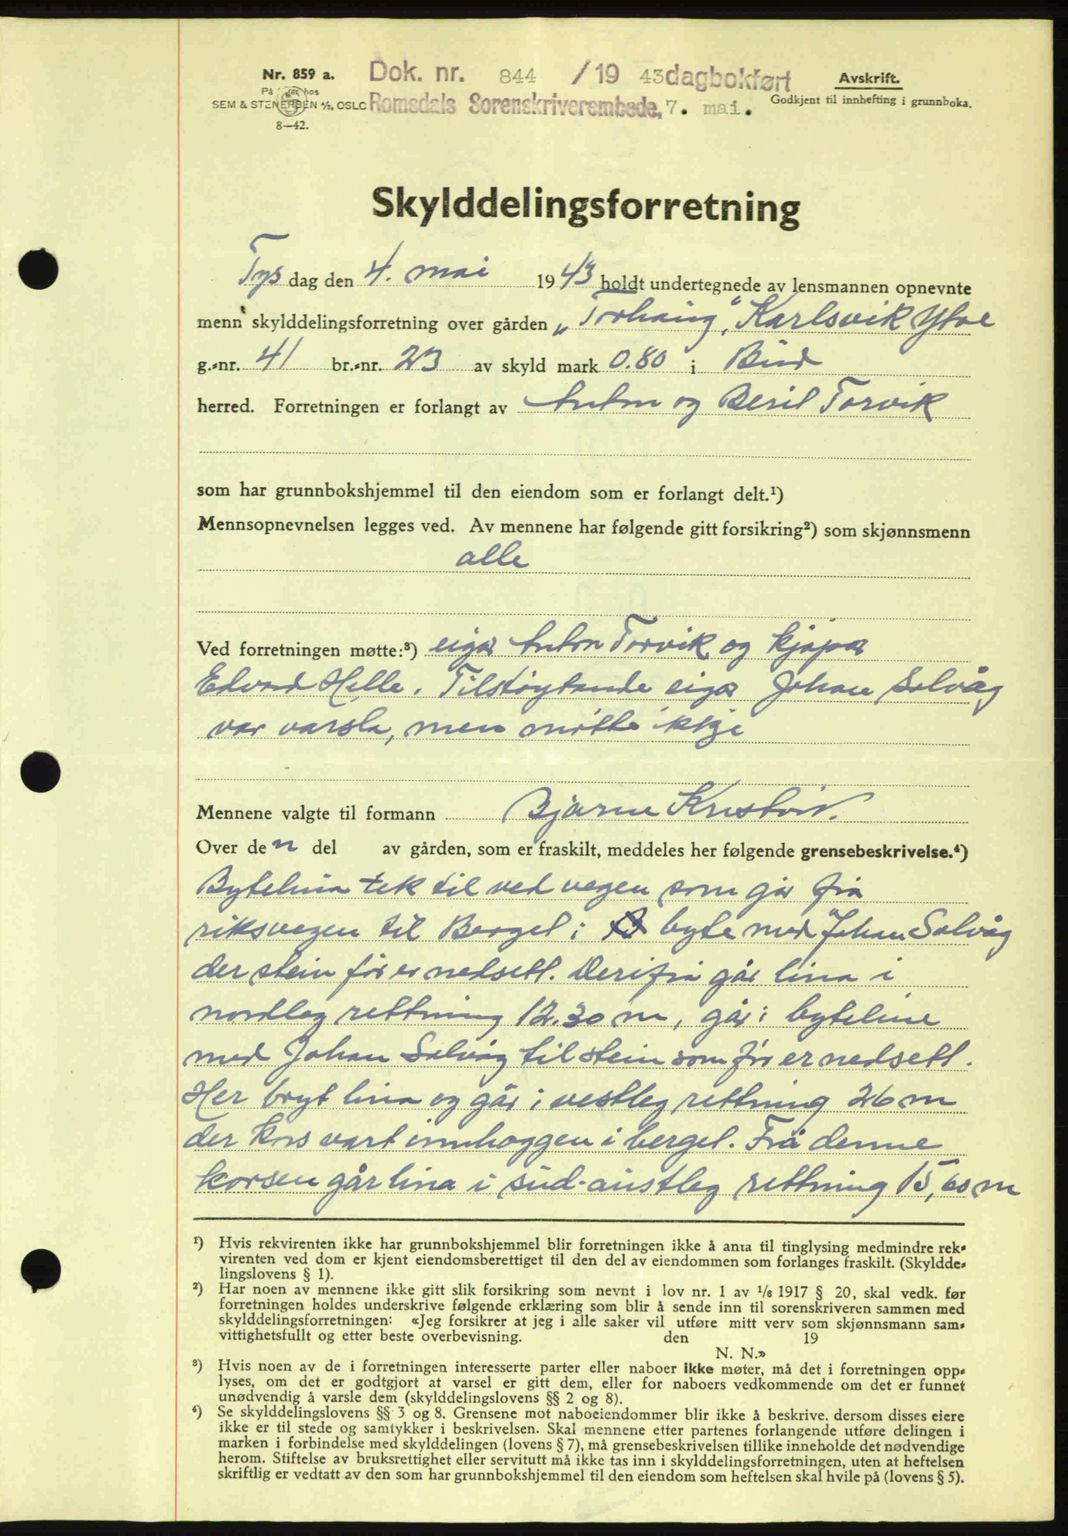 Nr. 859 a.
Dok. nr. 844 /19 43 dagbokført
Avskrift.
På hos
SEM & STENERSEN A/S, OSLO
Romsdals Sorenskriverembede, 7. mai.
Godkjent til innhefting i grunnboka.
8—42.
Skylddelingsforretning
Tys dag den 4. mai 1943 holdt undertegnede av lensmannen opnevnte
menn skylddelingsforretning over gården „Torhaug", Karlsvik Ytre
g.-nr. 41 br.-nr. 23 av skyld mark 0.80 i Bud
herred. Forretningen er forlangt av Anton og Beril Torvik
som har grunnbokshjemmel til den eiendom som er forlangt delt.¹)
Mennsopnevnelsen legges ved. Av mennene har følgende gitt forsikring²) som skjønnsmenn
alle
Ved forretningen møtte:³) eigar Anton Torvik og kjøpar
Edvard Helle. Tilstøytande eigar Johan Solvåg
var varsla, men møtte ikkje
Mennene valgte til formann Bjarne Krestvik.
Over den del av gården, som er fraskilt, meddeles her følgende grensebeskrivelse.⁴)
Bytelina tek til ved vegen som går frå
riksvegen til Berget i byte med Johan Solvåg
der stein før er nedsett. Derifrå går lina i
nordleg rettning 12.30 m, går i byteline
med Johan Solvåg til stein som før er nedsett.
Her bryt lina og går i vestleg rettning 26 m
der kors vart innhoggen i berget. Frå denne
korsen går lina i sud-austleg rettning 15,60 m
¹) Hvis rekvirenten ikke har grunnbokshjemmel blir forretningen ikke å anta til tinglysing medmindre rek-
virenten ved dom er kjent eiendomsberettiget til den del av eiendommen som forlanges fraskilt. (Skyldde-
lingslovens § 1).
²) Har noen av mennene ikke gitt slik forsikring som nevnt i lov nr. 1 av 1/6 1917 § 20, skal vedk. før
forretningen holdes underskrive følgende erklæring som blir å sende inn til sorenskriveren sammen med
skylddelingsforretningen: «Jeg forsikrer at jeg i alle saker vil utføre mitt verv som skjønnsmann sam-
vittighetsfullt og etter beste overbevisning. den 19
N. N.»
³) Hvis noen av de i forretningen interesserte parter eller naboer ikke møter, må det i forretningen opp-
lyses, om det er godtgjort at varsel er gitt dem, eller for naboers vedkommende om det er funnet
unødvendig å varsle dem (skylddelingslovens §§ 2 og 8).
⁴) Se skylddelingslovens §§ 3 og 8. Grensene mot naboeiendommer blir ikke å beskrive, dersom disses eiere
ikke er til stede og samtykker i beskrivelsen. Skal mennene etter partenes forlangende utføre delingen i
marken i forbindelse med skylddelingen (lovens § 7), må grensebeskrivelsen tillike inneholde det nødvendige
herom. Stiftelse av bruksrettighet eller servitutt må ikke tas inn i skylddelingsforretningen, uten at heftelsen
skriftlig er vedtatt av den som har grunnbokshjemmel til den eiendom som heftelsen skal hvile på (lovens § 5).